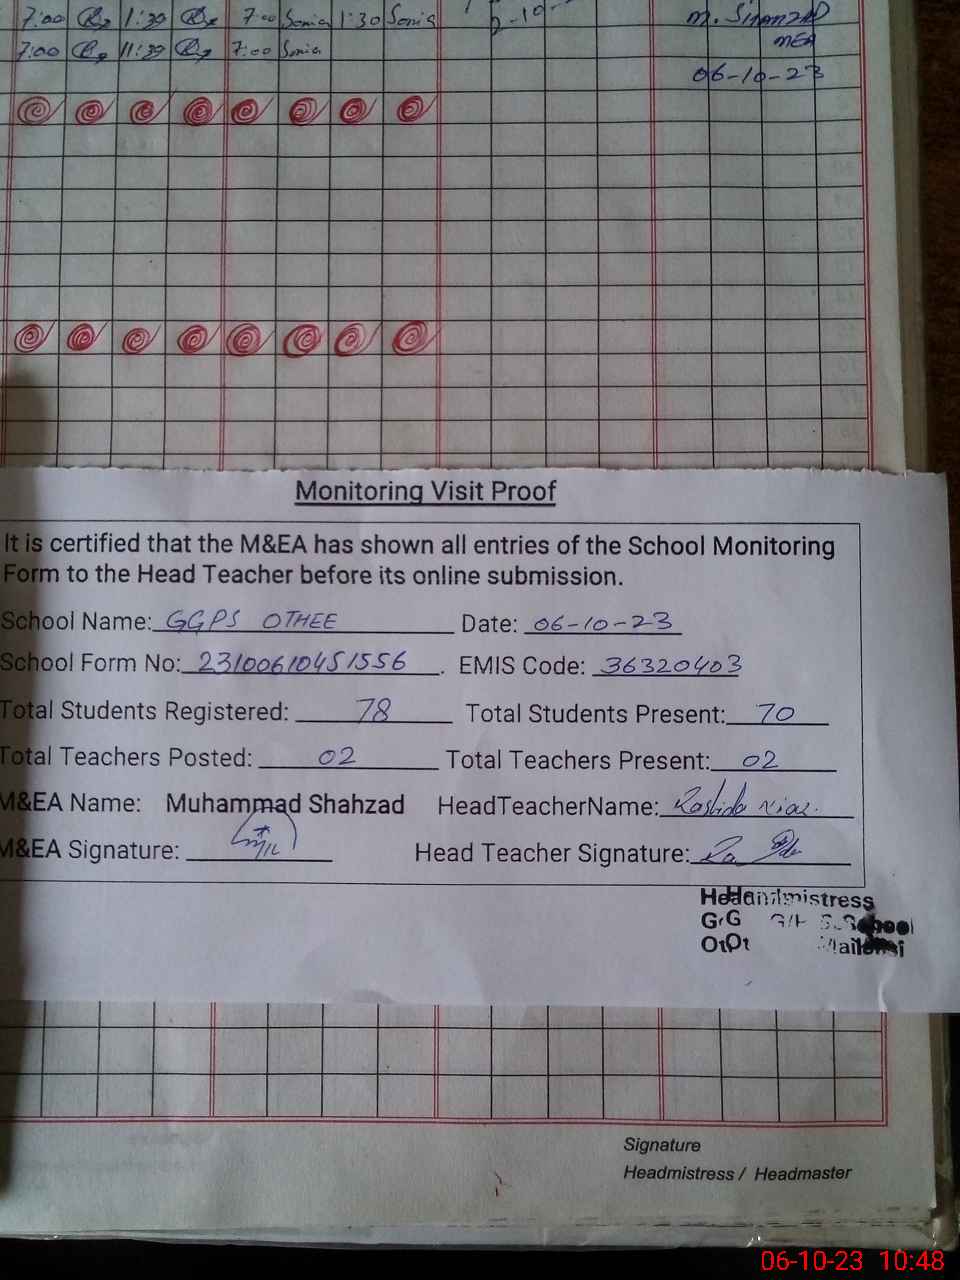 7:00 1:30 7:00 Sonia 1:30 Sonia
7:00 11:39 7:00 Sonia
M. SHAHZAD
MEA
06-10-23
Monitoring Visit Proof
It is certified that the M&EA has shown all entries of the School Monitoring
Form to the Head Teacher before its online submission.
School Name: GGPS OTHEE Date: 06-10-23
School Form No: 23100610451556. EMIS Code: 36320403
Total Students Registered: 78 Total Students Present: 70
Total Teachers Posted: 02 Total Teachers Present: 02
M&EA Name: Muhammad Shahzad HeadTeacherName: Rashida Niaz.
M&EA Signature: Head Teacher Signature:
Signature
Headmistress / Headmaster
06-10-23 10:48